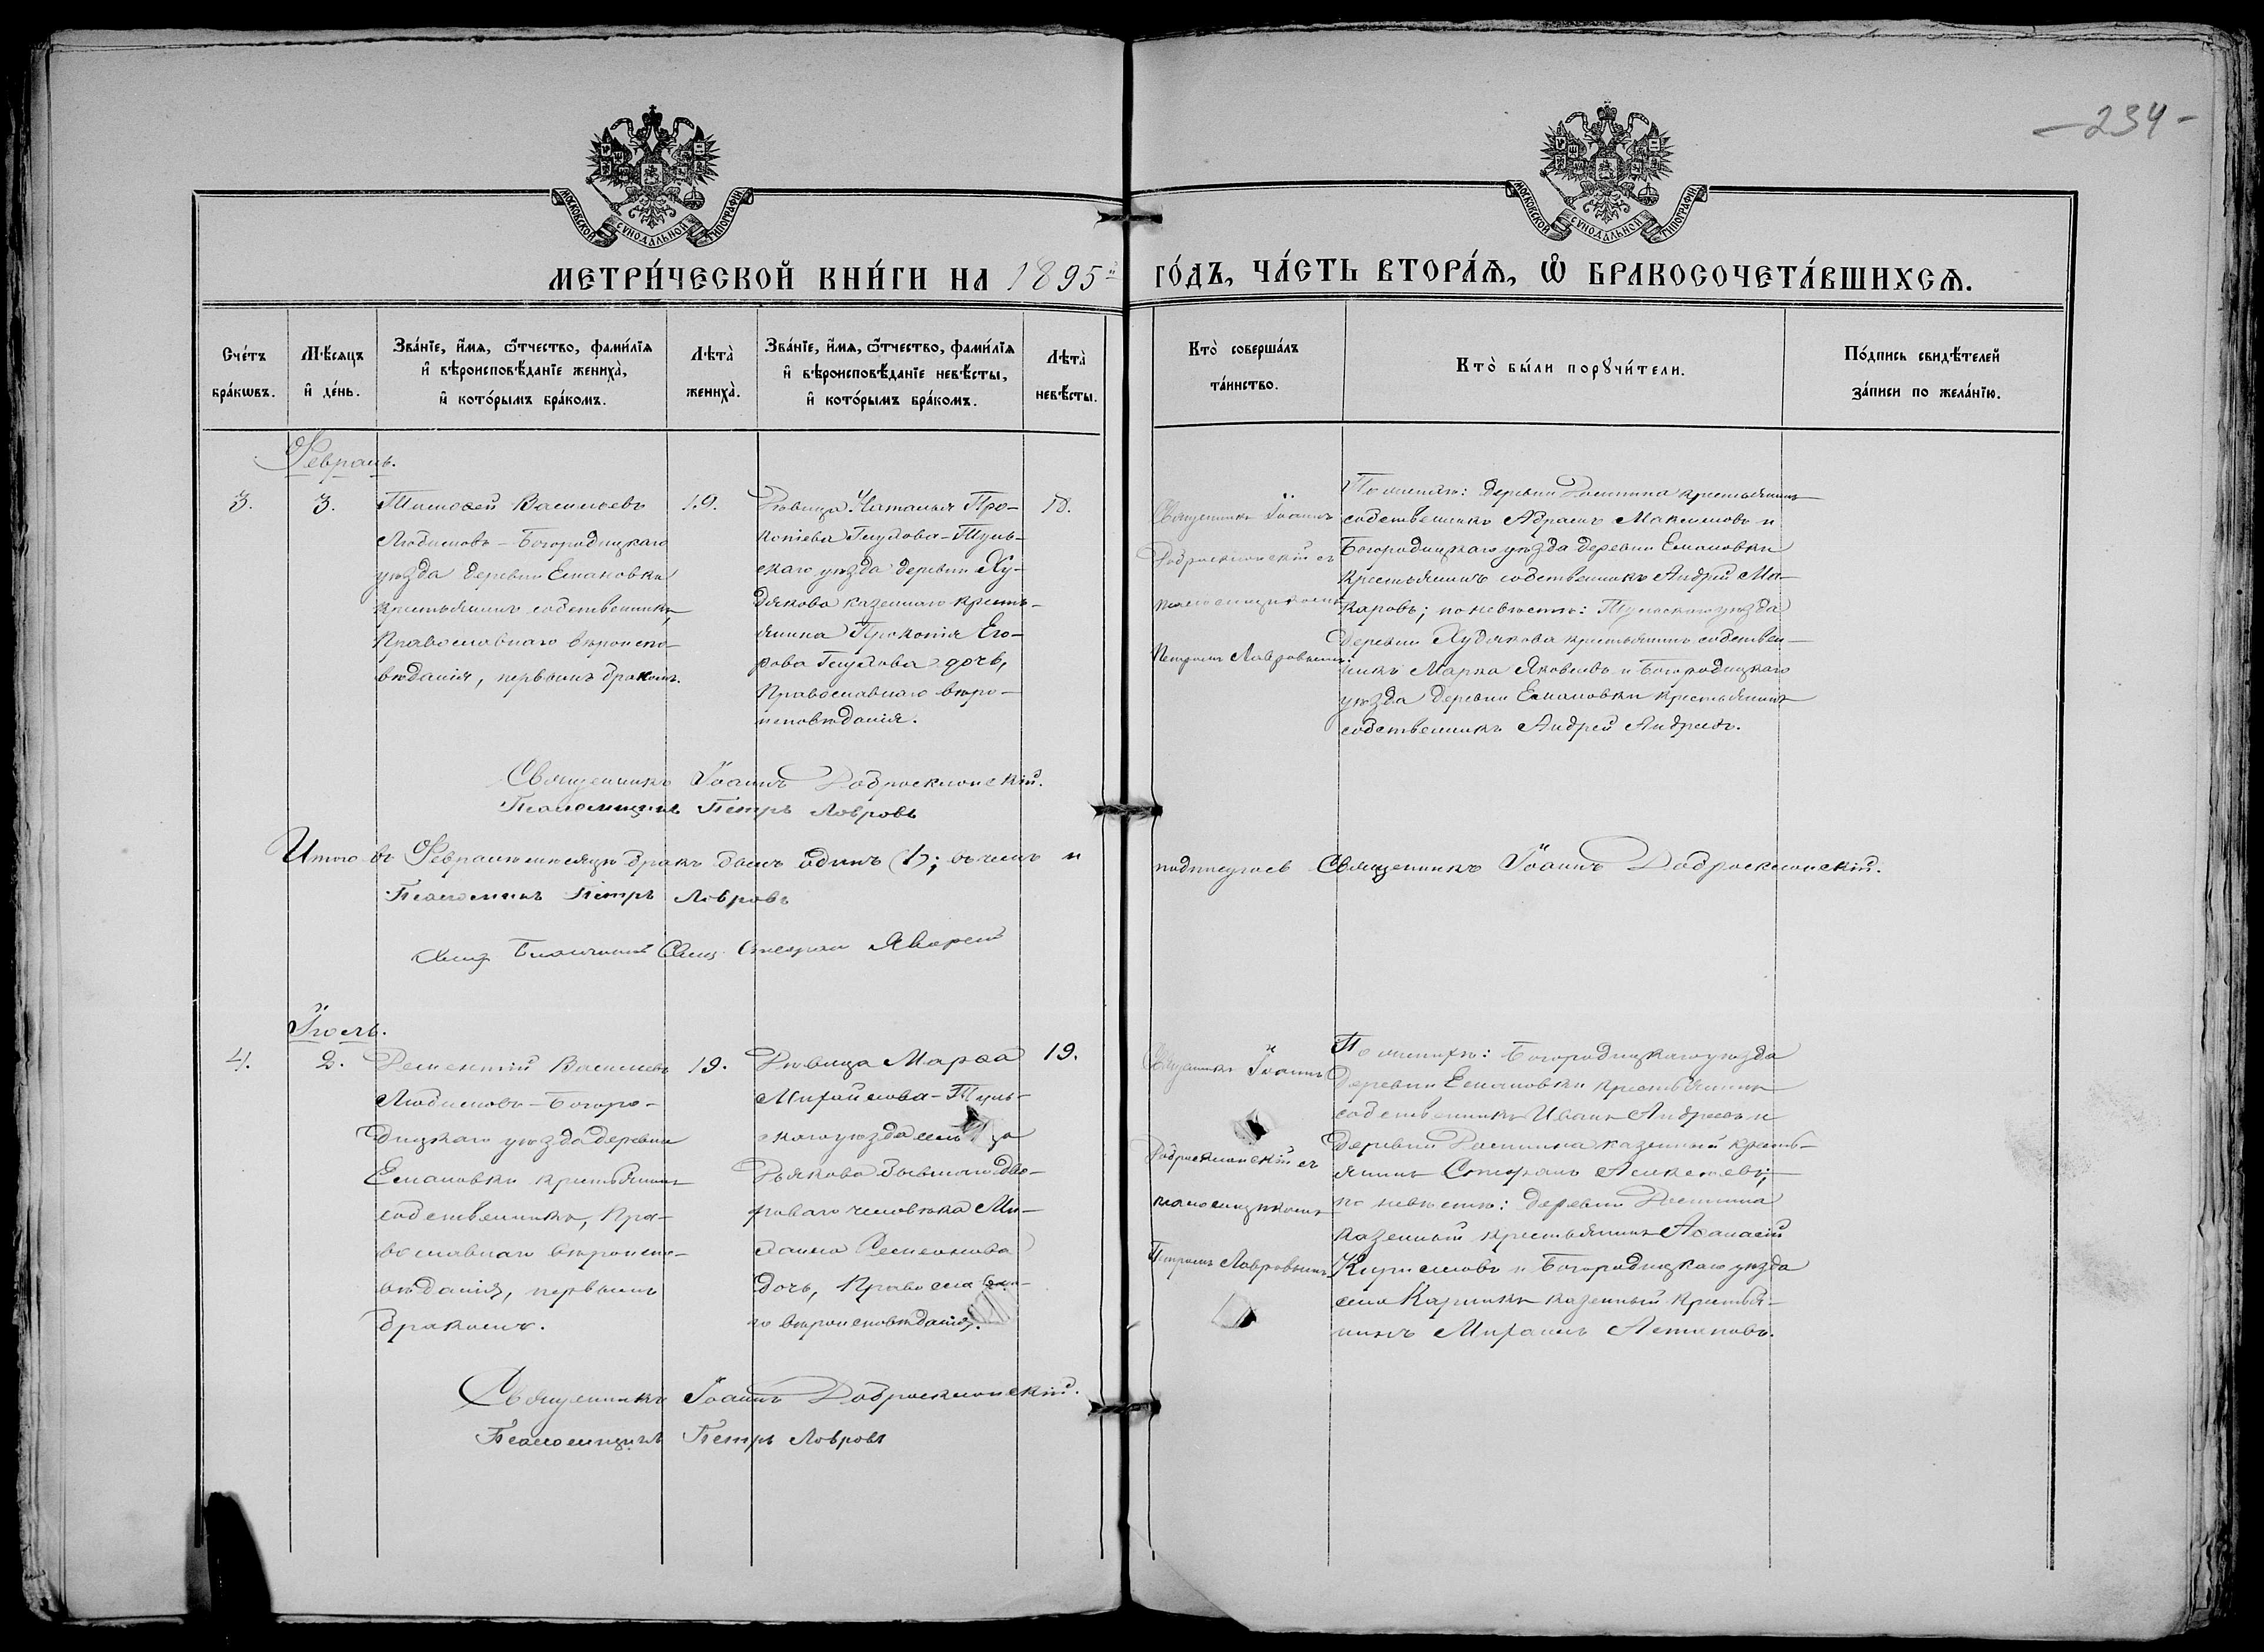 -234-
МОСКОВСКОЙ СѴНОДАЛЬНОЙ ТИПОГРАФІИ
МОСКОВСКОЙ СѴНОДАЛЬНОЙ ТИПОГРАФІИ
МЕТРИ́ЧЕСКОЙ КНИ́ГИ НА 1895й ГО́ДЪ, ЧА́СТЬ ВТОРА́Ѧ, Ѡ҆ БРАКОСОЧЕТА́ВШИХСѦ.
Сче́тъ
бра́кѡвъ.
Мѣ́сяцъ
и҆ де́нь.
Зва́нїе, и҆́мя, ѻ҆́тчество, фами́лїя
и҆ вѣроисповѣ́данїе жениха̀,
и҆ кото́рымъ бра́комъ.
Лѣта̀
жениха̀.
Зва́нїе, и҆́мя, ѻ҆́тчество, фами́лїя
и҆ вѣроисповѣ́данїе невѣ́сты,
и҆ кото́рымъ бра́комъ.
Лѣта̀
невѣ́сты.
Кто̀ соверша́лъ
та́инство.
Кто̀ бы́ли порꙋчи́тели.
По́дпись свидѣ́телей
за́писи по жела́нїю.
Февраль.
3.
3.
Тимоѳей Васильевъ
Любимовъ-Богородицкаго
уѣзда деревни Емановки
крестьянинъ собственникъ,
Православнаго вѣроиспо-
вѣданія, первымъ бракомъ.
19.
Дѣвица Наталья Про-
копіева Глухова-Туль-
скаго уѣзда деревни Ху-
дякова казеннаго кресть-
янина Прокопія Его-
рова Глухова дочь,
Православнаго вѣро-
исповѣданія.
18.
Священникъ Іоаннъ
Доброклонскій съ
псаломщикомъ
Петромъ Лавровымъ.
По женихѣ: деревни крестьянинъ
собственникъ Абрамъ Максимовъ и
Богородицкаго уѣзда деревни Емановки
крестьянинъ собственникъ Андрей Ма-
каровъ; по невѣстѣ: Тульскаго уѣзда
деревни Худякова крестьянинъ собствен-
никъ Марка Яковлевъ и Богородицкаго
уѣзда деревни Емановки крестьянинъ
собственникъ Андрей Андреевъ.
Священникъ Іоаннъ Доброклонскій.
Псаломщикъ Петръ Лавровъ
Итого въ Февралѣ мѣсяцѣ бракъ былъ одинъ (1); въ чемъ и подписуюсь Священникъ Іоаннъ Доброклонскій.
Псаломщикъ Петръ Лавровъ
Благочинный Свящ. Стефанъ
Іюль.
4.
2.
Дементій Васильевъ
Любимовъ-Богоро-
дицкаго уѣзда деревни
Емановки крестьянинъ
собственникъ, Пра-
вославнаго вѣроиспо-
вѣданія, первымъ
бракомъ.
19.
Дѣвица Марѳа
Михайлова-Туль-
скаго уѣзда
Дьякова бывшаго дво-
роваго человѣка Ми-
хаила Семенова
дочь, Православна-
го вѣроисповѣданія.
19.
Священникъ Іоаннъ
Доброклонскій съ
псаломщикомъ
Петромъ Лавровымъ
По женихѣ: Богородицкаго уѣзда
деревни Емановки крестьянинъ
собственникъ Иванъ Андреевъ и
деревни казенный кресть-
янинъ Стефанъ Алексѣевъ;
по невѣстѣ: деревни
казенный крестьянинъ Аѳанасій
Кирилловъ и Богородицкаго уѣзда
села казенный крестья-
нинъ Михаилъ
Священникъ Іоаннъ Доброклонскій.
Псаломщикъ Петръ Лавровъ